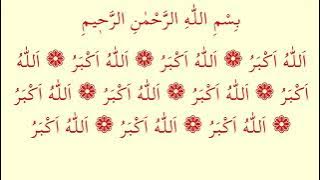 بِسْمِ اللهِ الرَّحْمٰنِ الرَّحٖيمِ
اَللهُ اَكْبَرُ ❁ اَللهُ اَكْبَرُ ❁ اَللهُ اَكْبَرُ ❁ اَللهُ
اَكْبَرُ ❁ اَللهُ اَكْبَرُ ❁ اَللهُ اَكْبَرُ ❁ اَللهُ اَكْبَرُ
❁ اَللهُ اَكْبَرُ ❁ اَللهُ اَكْبَرُ ❁ اَللهُ اَكْبَرُ